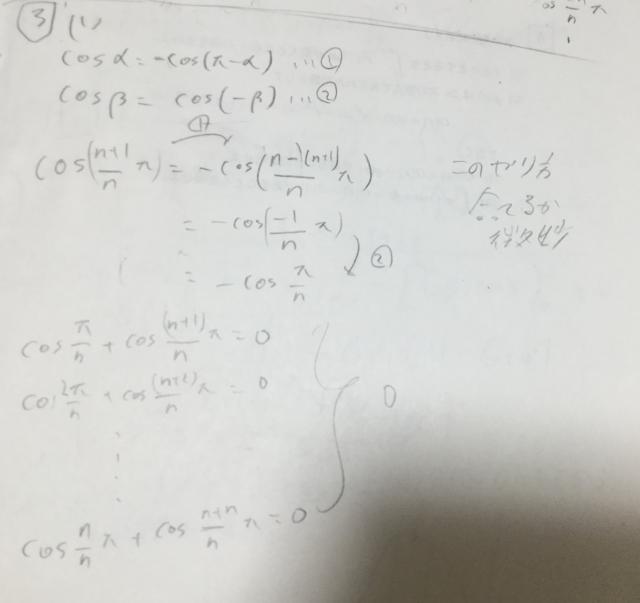 cos n/n π
③ (1)
cosα = -cos(π-α) …①
cosβ = cos(-β) …②
①
cos(n+1/n π) = -cos(n-(n+1)/n π)
= -cos(-1/n π)
②
= -cos π/n
このやり方
cos π/n + cos (n+1)/n π = 0
cos 2π/n + cos (n+2)/n π = 0
0
cos n/n π + cos n+n/n π = 0